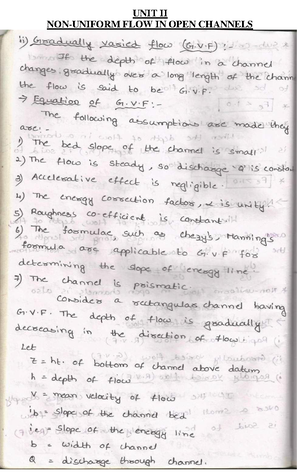 UNIT II
NON-UNIFORM FLOW IN OPEN CHANNELS
ii) Gradually varied flow (G.V.F) :-
If the depth of flow in a channel
changes gradually over a long length of the channel
the flow is said to be G.V.F.
→ Equation of G.V.F :-
The following assumptions are made they
are:-
1) The bed slope of the channel is small
2) The flow is steady, so discharge Q is constant
3) Accelerative effect is negligible.
4) The energy correction factors, α is unity
5) Roughness co-efficient is constant.
6) The formulae, such as chezy's, Manning's
formula are applicable to G.V.F for
determining the slope of energy line.
7) The channel is prismatic
Consider a rectangular channel having
G.V.F. The depth of flow is gradually
decreasing in the direction of flow.
Let
Z = ht. of bottom of channel above datum
h = depth of flow
V = mean velocity of flow
ib = slope of the channel bed
ie = slope of the energy line
b = width of channel
Q = discharge through channel.